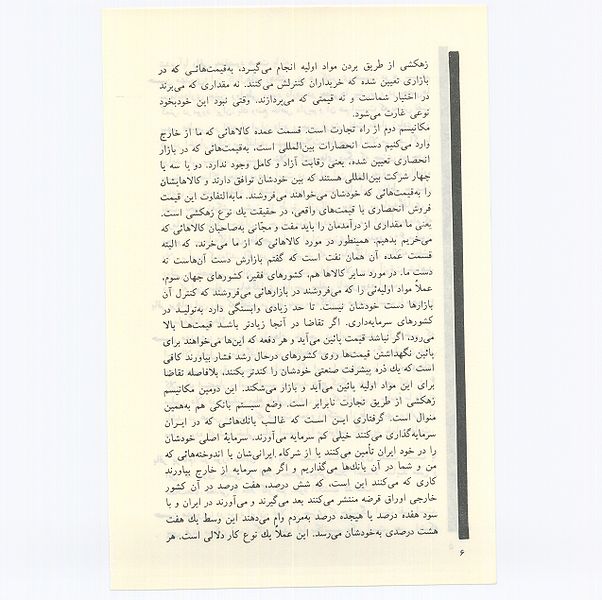 زهکشی از طریق بردن مواد اولیه انجام می‌گیرد، به‌قیمت‌هائی که در
بازاری تعیین شده که خریداران کنترلش می‌کنند. نه مقداری که می‌برند
در اختیار شماست و نه قیمتی که می‌پردازند. وقتی نبود این خودبخود
نوعی غارت می‌شود.
مکانیسم دوم از راه تجارت است. قسمت عمده کالاهائی که ما از خارج
وارد می‌کنیم دست انحصارات بین‌المللی است، به‌قیمت‌هائی که در بازار
انحصاری تعیین شده، یعنی رقابت آزاد و کامل وجود ندارد. دو یا سه یا
چهار شرکت بین‌المللی هستند که بین خودشان توافق دارند و کالاهایشان
را به‌قیمت‌هائی که خودشان می‌خواهند می‌فروشند. مابه‌التفاوت این قیمت
فروش انحصاری با قیمت‌های واقعی، در حقیقت یك نوع زهکشی است.
یعنی ما مقداری از درآمدمان را باید مفت و مجّانی به‌صاحبان کالاهائی که
می‌خریم بدهیم. همینطور در مورد کالاهائی که از ما می‌خرند، که البته
قسمت عمده آن همان نفت است که گفتم بازارش دست آن‌هاست نه
دست ما. در مورد سایر کالاها هم، کشورهای فقیر، کشورهای جهان سوم،
عملاً مواد اولیه‌ئی را که می‌فروشند در بازارهائی می‌فروشند که کنترل آن
بازارها دست خودشان نیست. تا حد زیادی وابستگی دارد به‌تولید در
کشورهای سرمایه‌داری. اگر تقاضا در آنجا زیادتر باشد قیمت‌ها بالا
می‌رود، اگر نباشد قیمت پائین می‌آید و هر دفعه که این‌ها می‌خواهند برای
پائین نگهداشتن قیمت‌ها روی کشورهای درحال رشد فشار بیاورند کافی
است که یك ذره پیشرفت صنعتی خودشان را کندتر بکنند، بلافاصله تقاضا
برای این مواد اولیه پائین می‌آید و بازار می‌شکند. این دومین مکانیسم
زهکشی از طریق تجارت نابرابر است. وضع سیستم بانکی هم به‌همین
منوال است. گرفتاری این است که غالب بانك‌هائی که در ایران
سرمایه‌گذاری می‌کنند خیلی کم سرمایه می‌آورند. سرمایهٔ اصلی خودشان
را در خود ایران تأمین می‌کنند یا از شرکاء ایرانی‌شان یا اندوخته‌هائی که
من و شما در آن بانك‌ها می‌گذاریم و اگر هم سرمایه از خارج بیاورند
کاری که می‌کنند این است، که شش درصد، هفت درصد در آن کشور
خارجی اوراق قرضه منتشر می‌کنند بعد می‌گیرند و می‌آورند در ایران و با
سود هفده درصد یا هیجده درصد به‌مردم وام می‌دهند این وسط یك هفت
هشت درصدی به‌خودشان می‌رسد. این عملاً یك نوع کار دلالی است. هر
۶